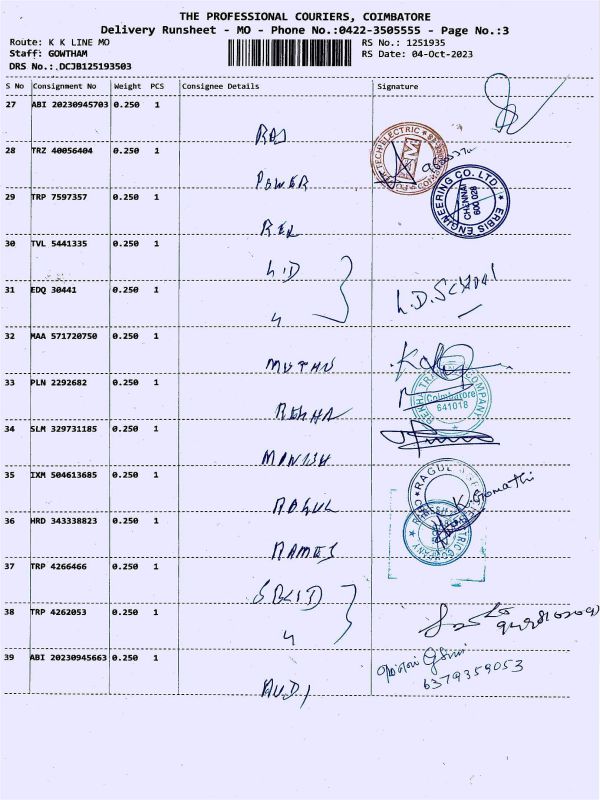 THE PROFESSIONAL COURIERS, COIMBATORE
Delivery Runsheet - MO - Phone No.:0422-3505555 - Page No.:3
Route: K K LINE MO
RS No.: 1251935
Staff: GOWTHAM
RS Date: 04-Oct-2023
DRS No.: DCJB125193503
S No Consignment No Weight PCS Consignee Details Signature
27 ABI 20230945703 0.250 1
28 TRZ 40056404 0.250 1
POWER
29 TRP 7597357 0.250 1
ERBIS ENGINEERING CO. LTD. CHENNAI 600 028
30 TVL 5441335 0.250 1
L.D
31 EDQ 30441 0.250 1
L.D. School
32 MAA 571720750 0.250 1
MUTHU
33 PLN 2292682 0.250 1
REKHA
REKHA TRADING COMPANY Coimbatore 641018
34 SLM 329731185 0.250 1
MANISH
35 IXM 504613685 0.250 1
RAGUL
K. Gomathi
36 HRD 343338823 0.250 1
RAMES
37 TRP 4266466 0.250 1
38 TRP 4262053 0.250 1
39 ABI 20230945663 0.250 1
6379359053
AUDI